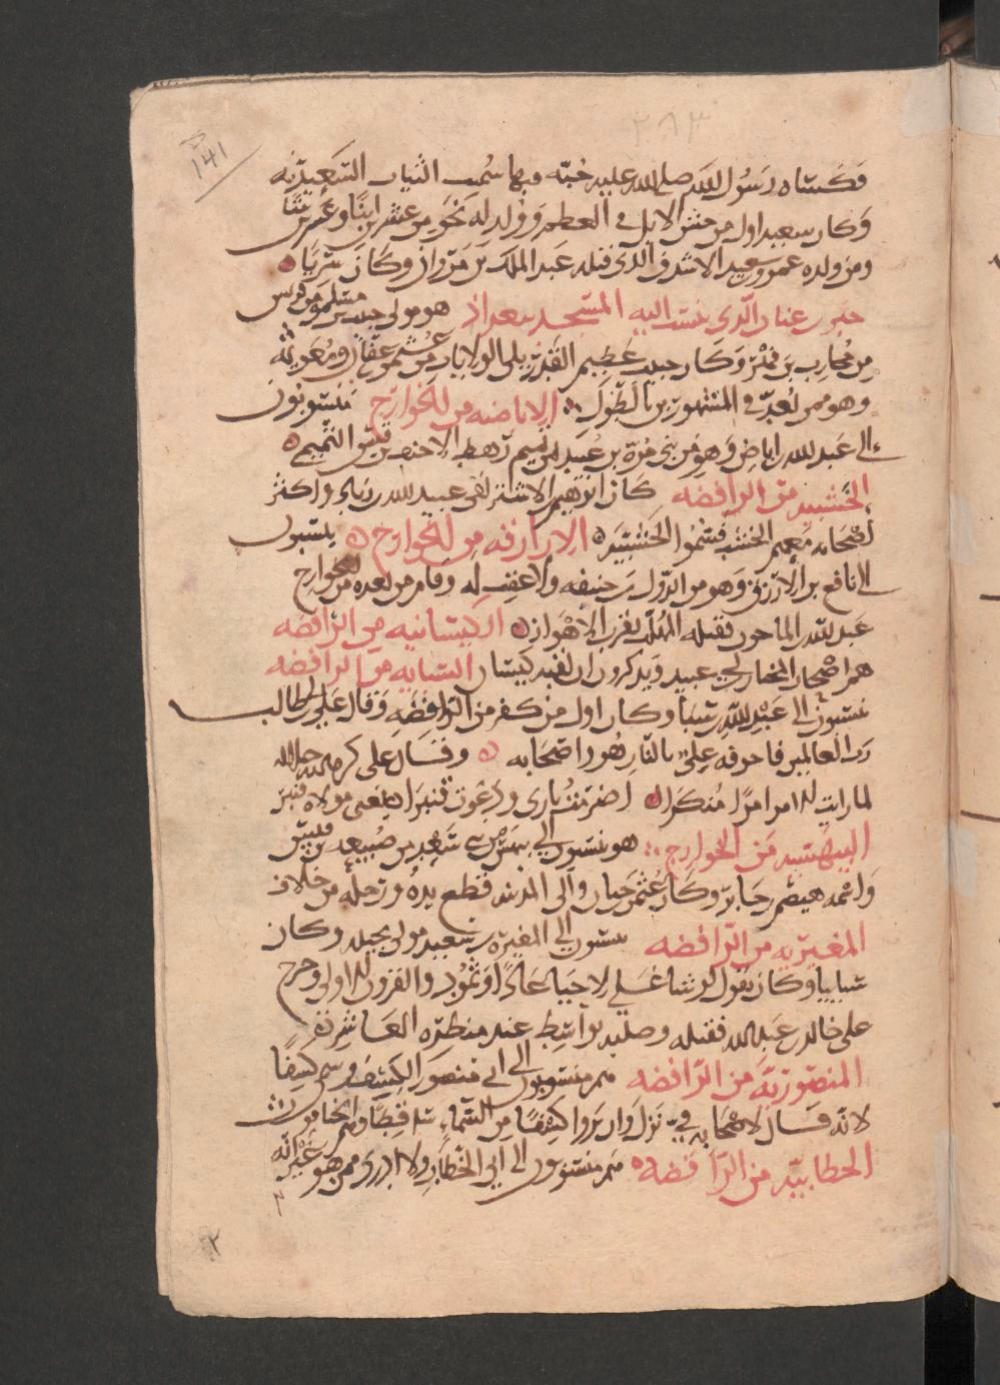 ١٤١
وكساه رسول الله صلى الله عليه جبته وبها سميت الثياب السعيدية
وكان سعيد اول من خش الابل في العظم وولد له نحو من عشرين ابنا وعشرين بنتا
ومن ولده عمرو بن سعيد الاشدق الذي قتله عبد الملك بن مروان وكان
الذي ينسب اليه المسجد ببغداد هو مولى حبيب بن مسلمة من قريش
من محارب بن فهر وكان حبيب عظيم القدر يلي الولايات من عثمن بن عفان ومعوية
وهو ممن يعد في المشهورين بالطول الاباضيه من الخوارج ينسبون
الى عبد الله بن اباض وهو من بني مرة بن عبيد من تميم رهط الاحنف بن قيس التميمي
الخشبيه من الرافضه كان ابرهيم بن الاشتر لقي عبيد الله بن زياد واكثر
اصحابه معهم الخشب فسموا الخشبيه الازارقه من الخوارج ينسبون
الى نافع بن الازرق وهو من الدول بن حنيفه ولا عقب له وقام من بعده من الخوارج
عبد الله بن الماحوز فقتله المهلب بقرب الاهواز الكيسانيه من الرافضه
هم اصحاب المختار بن ابي عبيد ويذكرون ان لقبه كيسان السبايه من الرافضه
ينسبون الى عبد الله بن سبا وكان اول من كفر من الرافضه وقال علي بن ابي طالب
رب العالمين فاحرقه علي بالنار هو واصحابه وقال علي كرم الله
لما رايت الامر امرا منكرا اضرمت ناري ودعوت قنبرا يعني مولاه قنبر
البيهسيه من الخوارج هو ينسبون الى بيهس من بني سعد بن ضبيعه بن قيس
واسمه هيصم بن جابر وكان عثمن بن حيان والي المدينه قطع يده ورجله من خلاف
المغيريه من الرافضه ينسبون الى المغيره بن سعيد مولى بجيله وكان
سبابيا وكان يقول لو شا علي لاحيا عادا وثمود والقرون الاولى وخرج
على خالد بن عبد الله فقتله وصلبه بواسط عند منظره العاشر
المنصوريه من الرافضه هم منسوبون الى ابي منصور الكسف وسمي كسفا
لانه قال لاصحابه في نزل وان يروا كسفا من السماء ساقطا وهم الخناقون
الخطابيه من الرافضه هم منسوبون الى ابي الخطاب ولا ادري ممن هو غير انه
٢